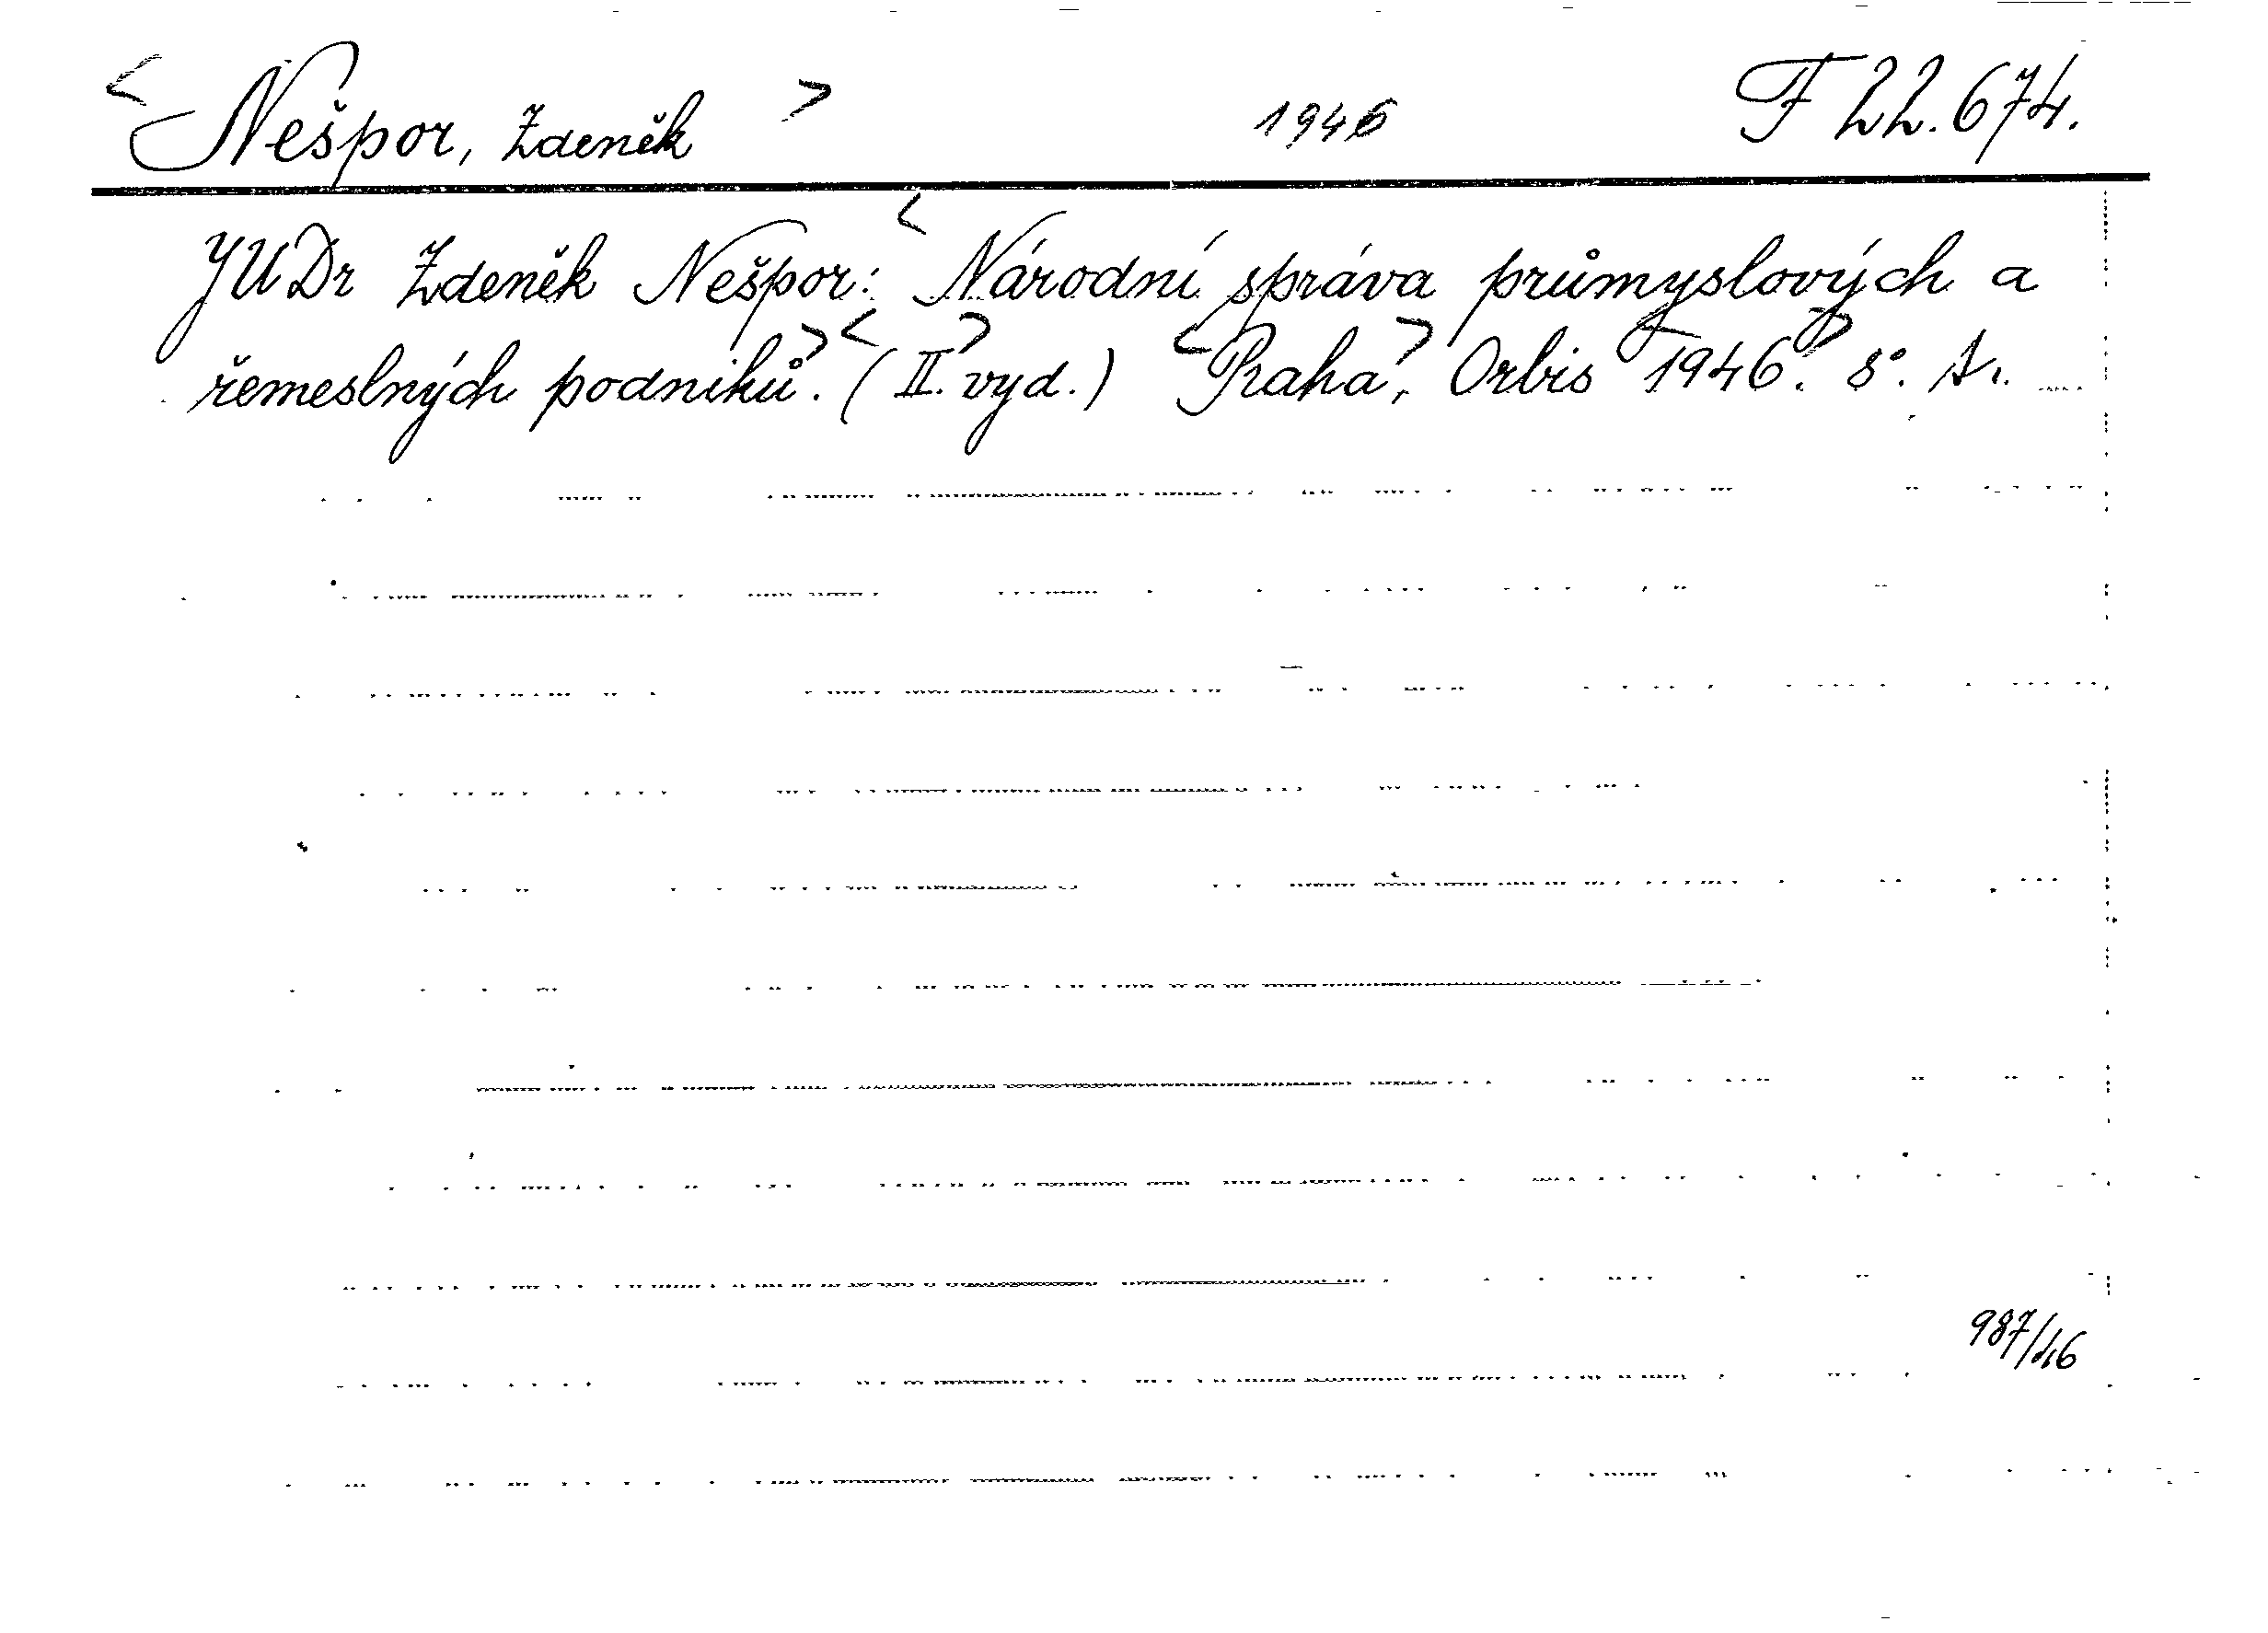 <Nešpor, Zdeněk> 1946 F 22.674.
JUDr Zdeněk Nešpor: <Národní správa průmyslových a
řemeslných podniků>. <(II.> vyd.) <Praha>, Orbis <1946>. 8°.
987/46